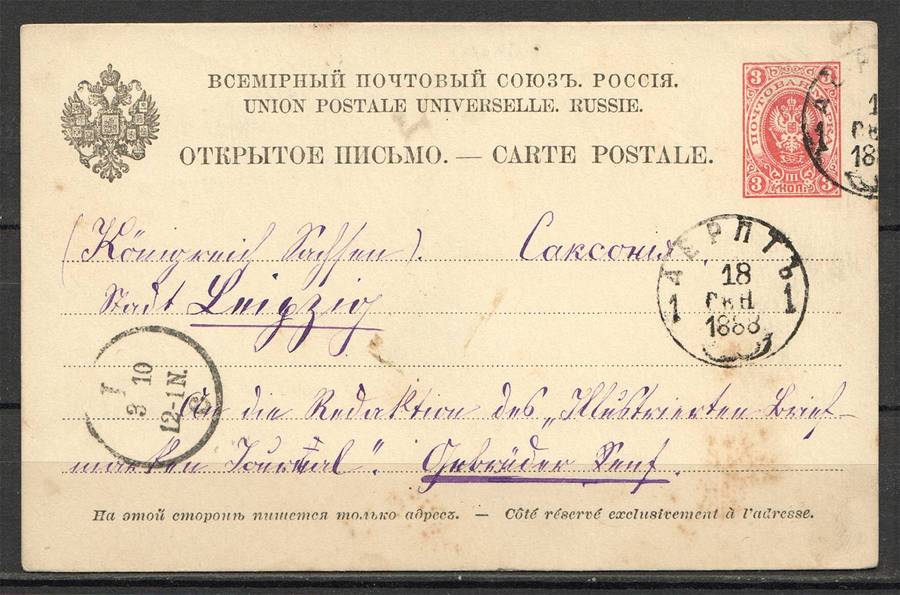 ВСЕМІРНЫЙ ПОЧТОВЫЙ СОЮЗЪ. РОССІЯ.
UNION POSTALE UNIVERSELLE. RUSSIE.
ОТКРЫТОЕ ПИСЬМО. — CARTE POSTALE.
3 3
ПОЧТОВАЯ МАРКА
III
3 КОП. 3
1
СЕН
188
1
(Königreich Sachsen). Саксонія.
Stadt Leipzig
ДЕРПТЪ
18
СЕН
1888
1 1
I
3 10
12-1N.
An die Redaktion des „Illustrierten Brief-
marken Journal". Gebrüder Senf.
На этой сторонѣ пишется только адресъ. — Côté réservé exclusivement à l'adresse.